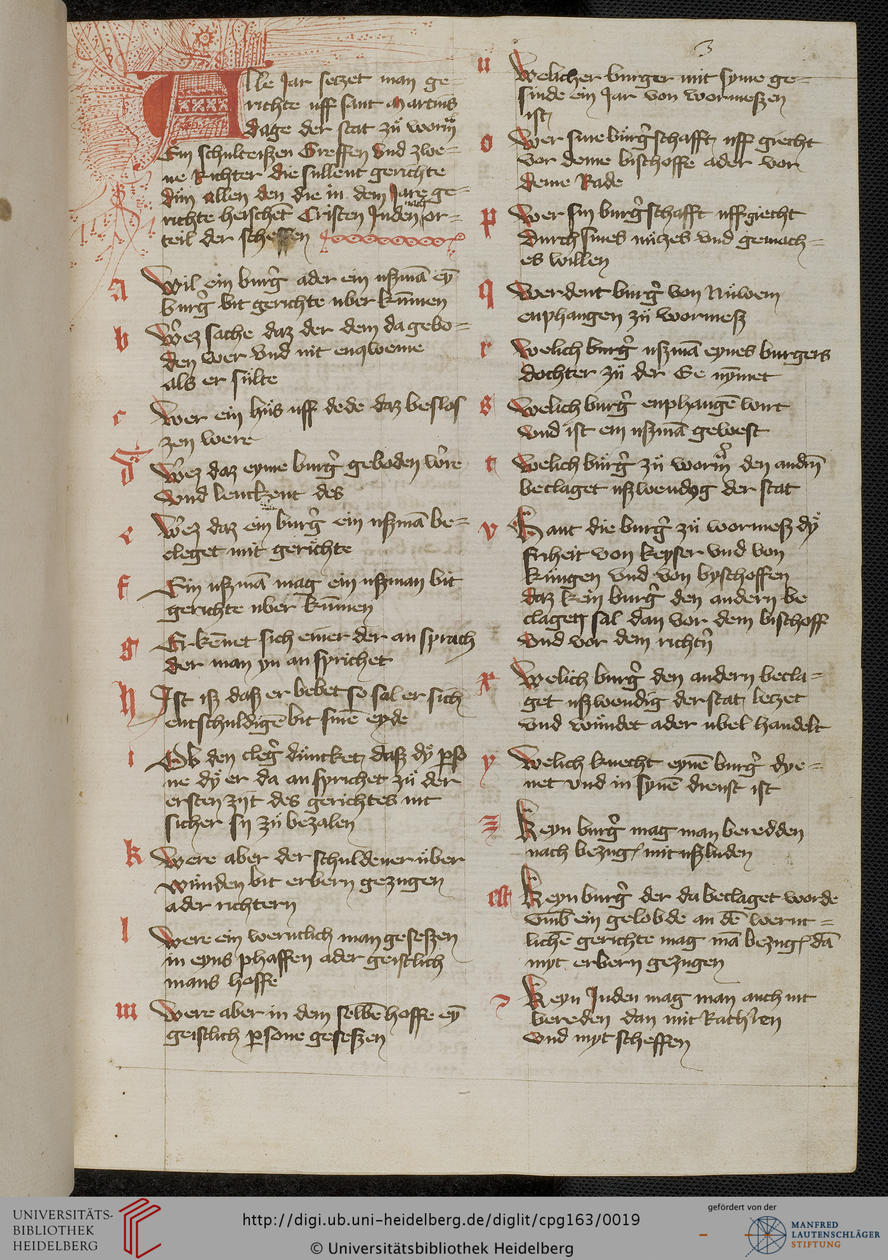 3
Alle Jar setzet man ge=
richte uff sant Martins
dage der stat zů wormß
Ein schulteißen Greffen vnd zwe=
ne Richter die sullent gerichte
dun allen den die in dem Jare ge=
richte heischet Cristen Juden nach or=
teil der scheffen
a Wil ein burg̃ ader ein ußmā eȳ
burg̃ bit gerichte uber kūmen
b Wez sache daz der dem da gebo=
den wer vnd nit enqweme
als er sülte
c Wer ein hus uff dede daz beslos
zen were
d Wez daz eyme burg̃ geboden w̃re
vnd lenckent des
e Wez daz ein burg̃ ein ußmā be=
cleget mit gerichte
f Ein ußmā mag ein ußman bit
gerichte uber kūmen
g Erkēnet sich einer der an sprach
der man yn an sprichet
h Ist iß daß er bebet so sal er sich
entschuldigē bit sinē eyde
i Ob den cleg̃ důncket daß dÿ p̱so
ne dÿ er da an sprichet zů der
ersten zijt des gerichtes nit
sicher sy zů bezalen
k Were aber der schuldener über
wunden bit erbern gezugen
ader richtern
l Were ein werntlich man geseßen
in eyns phaffen ader geistlich
mans hoffe
m Were aber in dem selbē hoffe eȳ
geistlich p̱sone geseßen
n Welicher burger mit syme ge=
sinde ein Jar von wormeßen
ist
o Wer sine burg̃schafft uff giecht
vor deme bischoffe ader vor
deme Rade
p Wer sin burg̃schafft uffgiecht
durch sines nützes vnd gemach=
es willen
q Werdent burg̃ von Nuwem
enphangen zů wormeß
r Welich burg̃ ußmā eynes burgers
dochter zů der Ee nȳmet
s Welich burg̃ enphangē wirt
vnd ist ein ußmā gewest
t Welich burg̃ zů worm̃ den andn̄
beclaget ußwendyg der stat
v Hant die burg̃ zů wormeß dÿ
friheit von keyser vnd von
kungen vnd von byschoffen
daz kein burg̃ den andern be
clagen sal dan vor dem bischoff
vnd vor dem richtn̄
x Welich burg̃ den andern becla=
get ußwendig der stat letzet
vnd wundet ader ubel handelt
y Welich knecht eynē burg̃ dye=
net vnd in synē dienst ist
z Keyn burg̃ mag man beredden
nach bezug̃ mit ußluden
Keyn burg̃ der da beclaget worde
vmb ein gelobde an dē wernt=
lichē gerichte mag mā bezug̃ dā
myt erbern gezugen
Keyn Juden mag man auch nit
bereden dan mit Rathern
vnd myt scheffen
UNIVERSITÄTS-
BIBLIOTHEK
HEIDELBERG
http://digi.ub.uni-heidelberg.de/diglit/cpg163/0019
© Universitätsbibliothek Heidelberg
gefördert von der
MANFRED
LAUTENSCHLÄGER
STIFTUNG